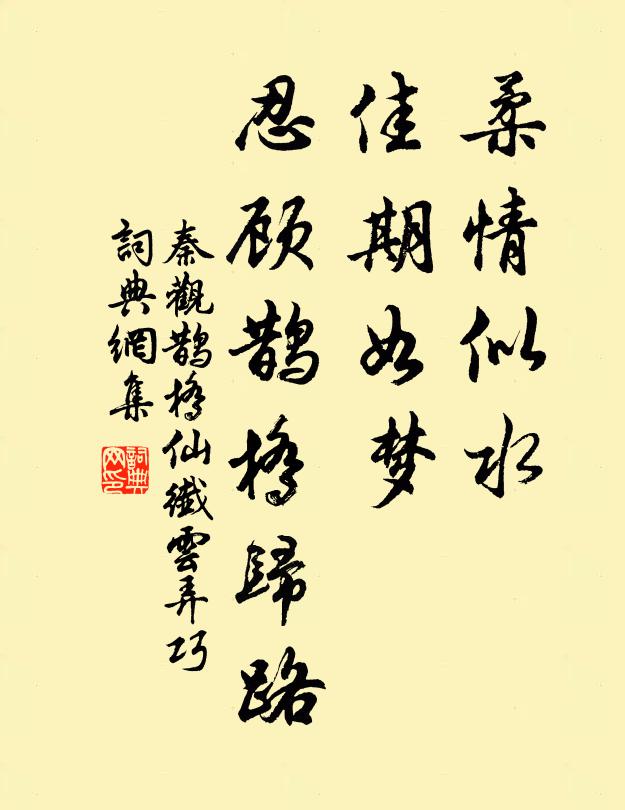 柔情似水
佳期如梦
忍顾鹊橋歸路
秦觀鹊橋仙纖雲弄巧
詞典網集
詞典
网印